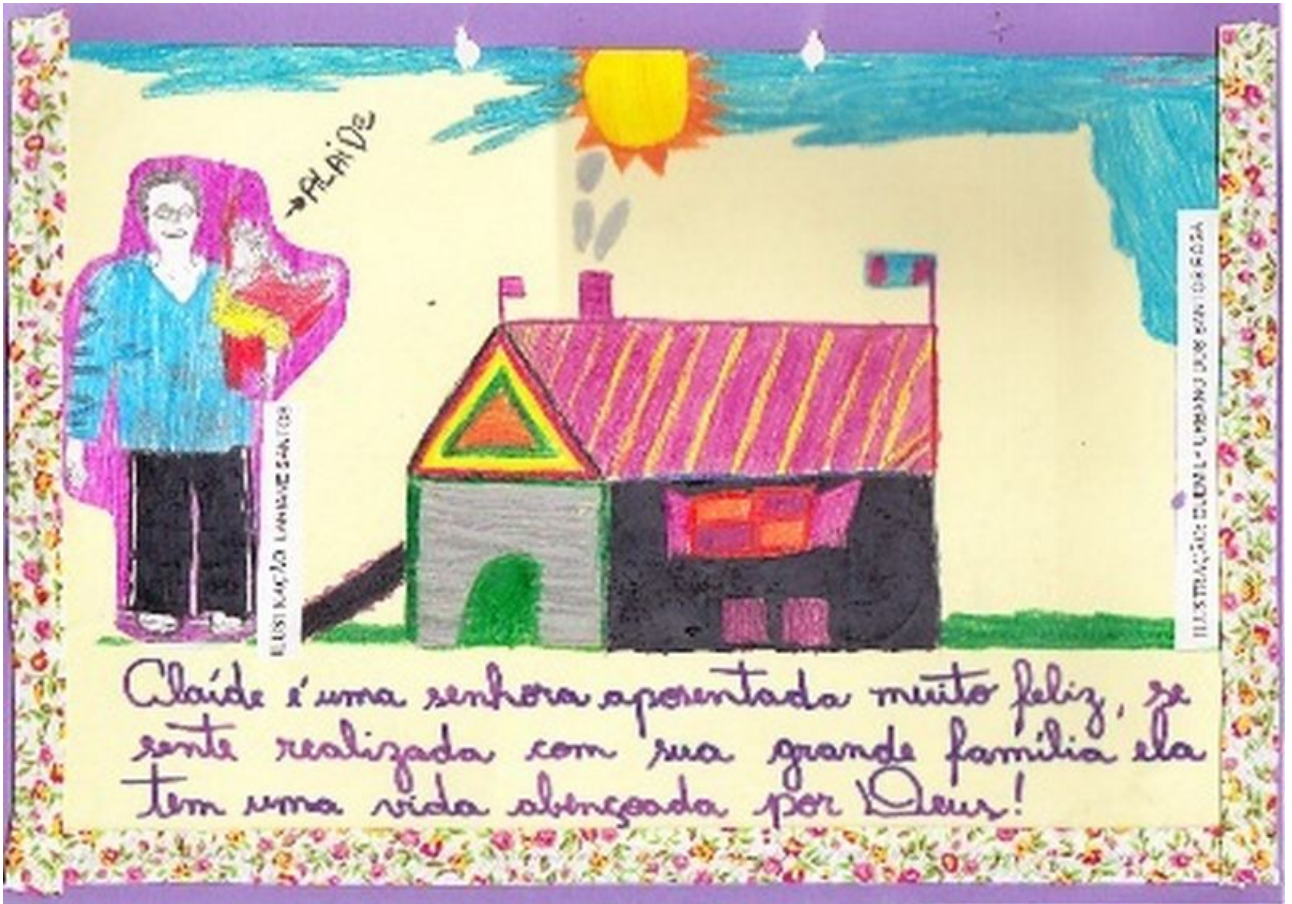 ALAIDE
ILUSTRAÇÃO: SANTOS
ILUSTRAÇÃO: DOS SANTOS ROSA
Alaíde é uma senhora aposentada muito feliz, se
sente realizada com sua grande família ela
tem uma vida abençoada por Deus!